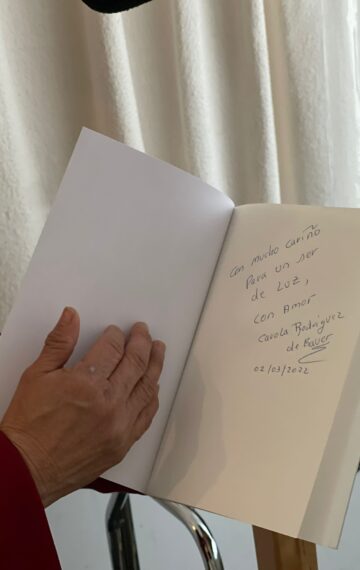 Con mucho cariño
Para un ser
de Luz,
con Amor
Carola Rodriguez
de Bauer
02/03/2022